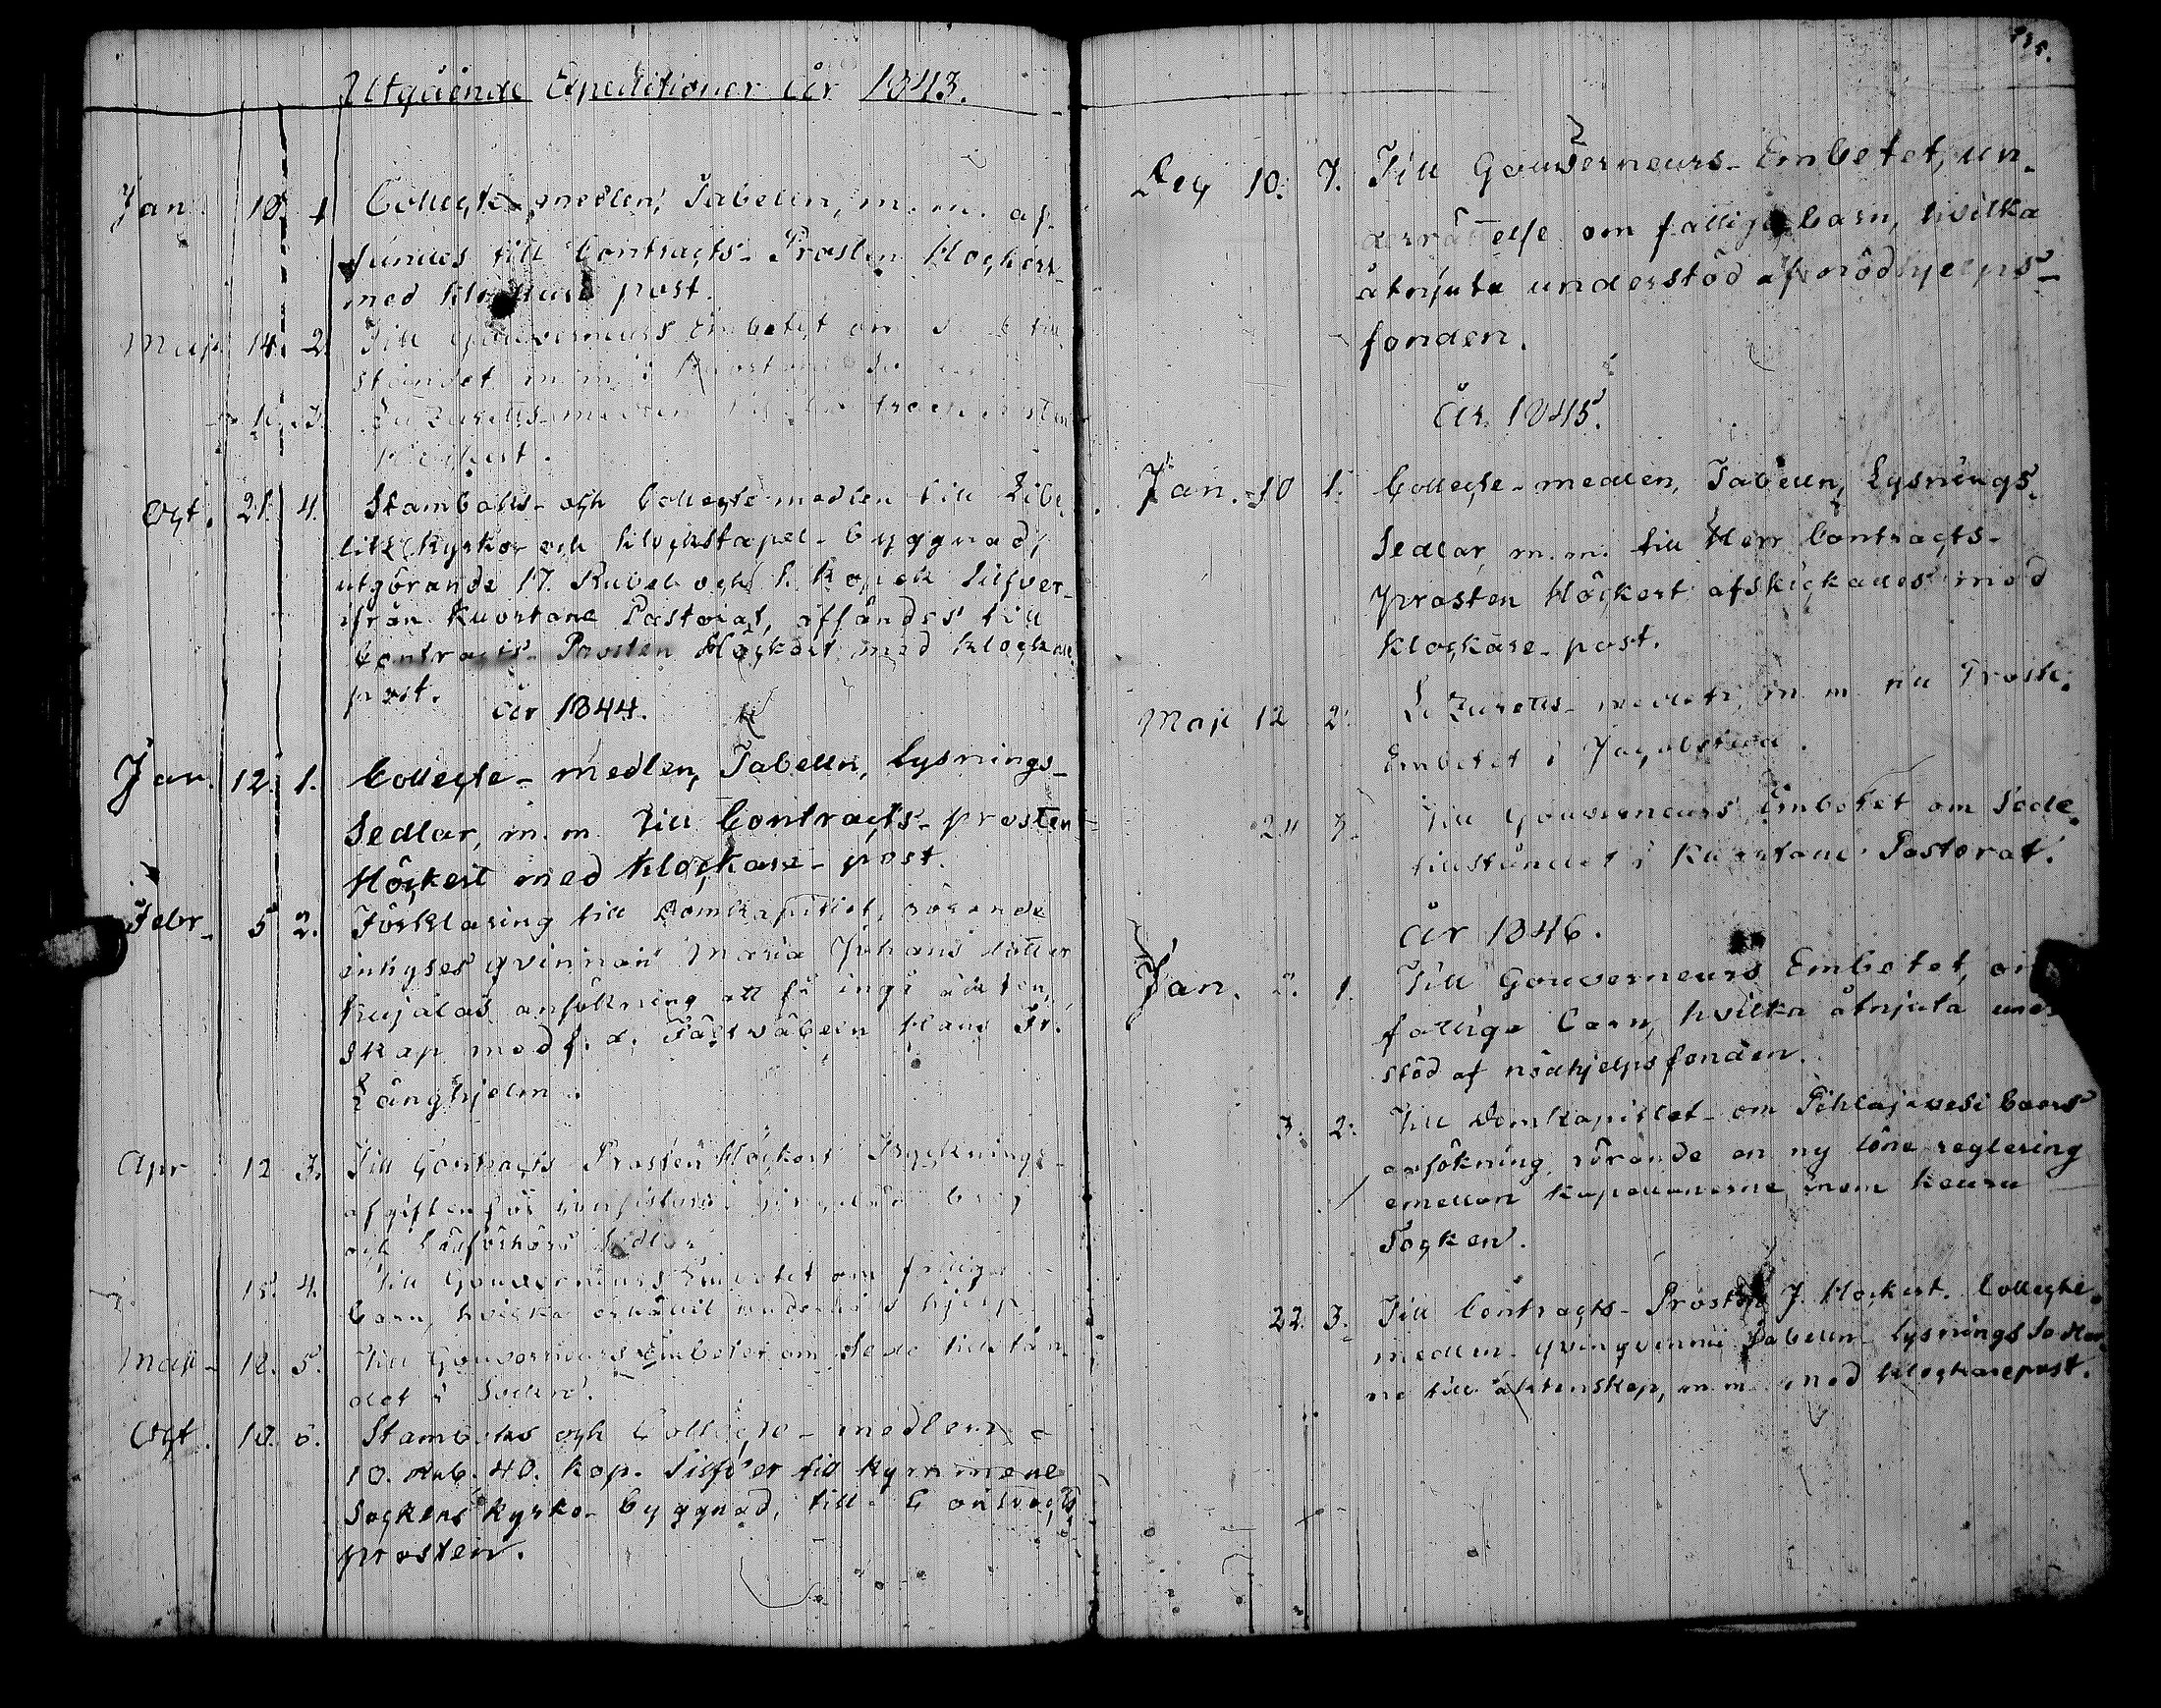 Utgående Expeditioner År 1843.
Jan. 18. 1 Collecte-medlen, Tabellen, m.m. af-
sändes till Contracts-Prosten Höckert
med klockare post.
Maji 14. 2. Till Gouverneurs Embetet om
ståndet m.m. i
3. Lazaretts-medlen till
Höckert.
Oct. 21. 4. Stamboks- och Collecte-medlen till Libe-
litz kyrko- och klockstapel-byggnad,
utgörande 17. Rubel och 1. kopek Silfver
ifrån Kuortane Pastorat, affändes till
Contracts-Prosten Höckert med klockare
post.
År 1844.
Jan. 12. 1. Collecte-medlen, Tabelln, Lysnings-
Sedlar, m.m. till Contracts-prosten
Höckert med klockare-post.
Febr. 5 2. Förklaring till Domkapitlet, rörande
inhyses qvinnan Maria Johans dotter
Kujalas ansökning att få ingå ägten-
skap med f. d. Hans Fr.
Långhjelm.
Apr. 12 3. Till Contracts Prosten Höckert Trycknings-
afgiften för Consistorii
och Läseförhörs Sedlar.
15. 4. Till Gouverneurs Embetet om fattiga
barn, hvilka erhållit underhålls hjelp
Maji 12. 5. Till Gouverneurs Embetet om Sede tillstån-
det i Socknen.
Oct. 18. 6. Stamboks och Collecte-medlen
10. Rub. 40. kop. Silfver till Kymmene
Sockens kyrko-byggnad, till Contracts
prosten.
135.
Dec 10. 7. Till Gouverneurs-Embetet, un-
derrättelse om fattiga barn, hvilka
åtnjuta understöd af nödhjelps-
fonden.
År 1845.
Jan. 10 1. Collecte-medlen, Tabelln, Lysnings-
Sedlar, m.m. till Herr Contracts-
prosten Höckert afskickades med
klockare-post.
Maji 12 2. Lazaretts-medlen, m.m. till Proste-
Embetet i Jacobstad.
24 3. Till Gouverneurs Embetet om Sede-
tillståndet i Kuortane Pastorat.
År 1846.
Jan. 2. 1. Till Gouverneurs Embetet, om
fattiga barn, hvilka åtnjuta under-
stöd af nödhjelpsfonden.
3. 2. Till Domkapitlet om Pihlajavesi boers
ansökning, rörande en ny löne reglering
emellan kapellanerne inom Keuru
Socken.
22. 3. Till Contracts-Prosten J. Höckert. Collecte-
medlen, Tabelln, Lysnings Sedlar-
ne till äktenskap, m.m. med klockarepost.